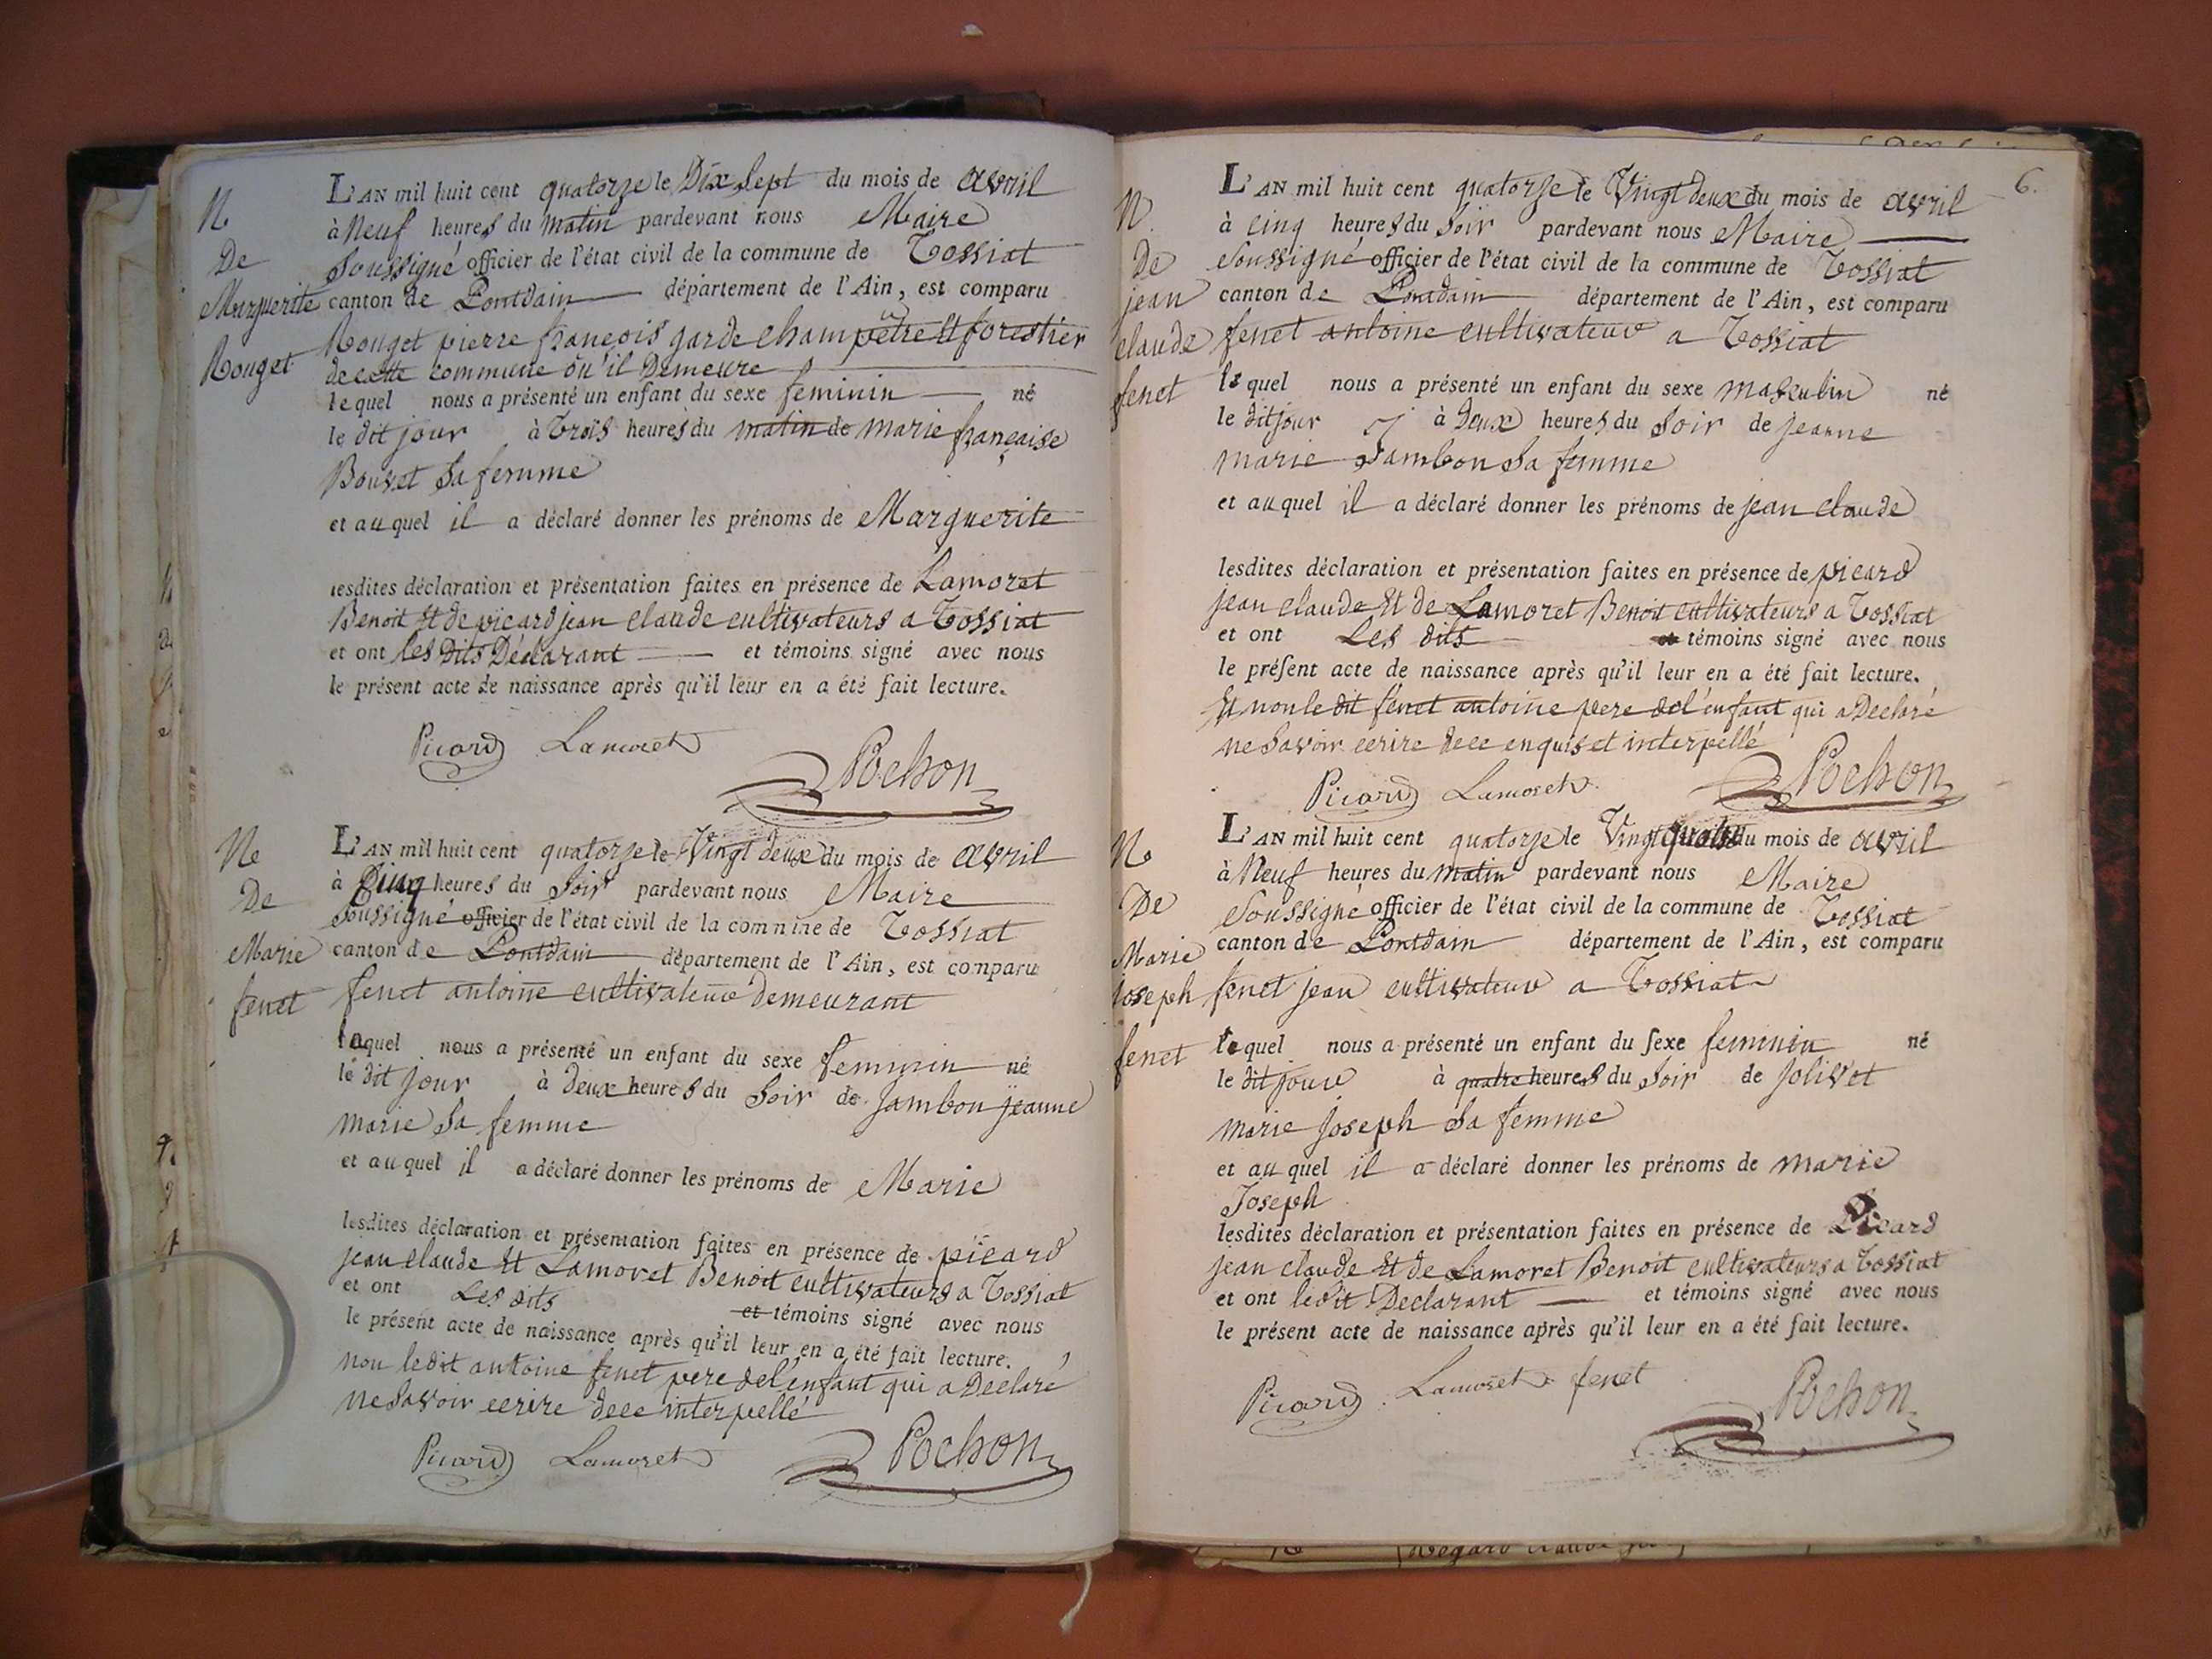 N
De
Marguerite
Rouget
L'AN mil huit cent quatorze le Dix Sept du mois de avril
à Neuf heures du matin pardevant nous Maire
Soussigné officier de l'état civil de la commune de Tossiat
canton de Pontdain département de l'Ain, est comparu
Rouget pierre françois garde champêtre Et forestier
de cette commune ou il Demeure
lequel nous a présenté un enfant du sexe feminin né
le dit jour à Trois heures du matin de marie française
Bouvet Sa femme
et auquel il a déclaré donner les prénoms de Marguerite
lesdites déclaration et présentation faites en présence de Lamoret
Benoit Et de picard jean claude cultivateurs a Tossiat
et ont les Dits Déclarant et témoins signé avec nous
le présent acte de naissance après qu'il leur en a été fait lecture.
Picard Lamoret Pochon
Ne
De
Marie
fenet
L'AN mil huit cent quatorze le Vingt deux du mois de avril
à Cinq heures du Soir pardevant nous Maire
Soussigné officier de l'état civil de la commune de Tossiat
canton de Pontdain département de l'Ain, est comparu
fenet antoine cultivateur demeurant
lequel nous a présenté un enfant du sexe feminin né
le dit jour à Deux heures du Soir de Jambon jeanne
marie Sa femme
et auquel il a déclaré donner les prénoms de Marie
lesdites déclaration et présentation faites en présence de picard
jean claude Et Lamoret Benoit cultivateurs a Tossiat
et ont Les dits et témoins signé avec nous
le présent acte de naissance après qu'il leur en a été fait lecture.
non ledit antoine fenet pere de l'enfant qui a Declaré
ne Savoir ecrire de ce interpellé
Picard Lamoret Pochon
6.
N.
De
jean
claude
fenet
L'AN mil huit cent quatorze le Vingt deux du mois de avril
à cinq heures du Soir pardevant nous Maire
Soussigné officier de l'état civil de la commune de Tossiat
canton de Pontdain département de l'Ain, est comparu
fenet antoine cultivateur a Tossiat
lequel nous a présenté un enfant du sexe masculin né
le dit jour à Deux heures du Soir de jeanne
marie Jambon Sa femme
et auquel il a déclaré donner les prénoms de jean claude
lesdites déclaration et présentation faites en présence de picard
jean claude Et de Lamoret Benoit cultivateurs a Tossiat
et ont Les dits et témoins signé avec nous
le présent acte de naissance après qu'il leur en a été fait lecture.
Et non le dit fenet antoine pere de l'enfant qui a Declaré
ne Savoir ecrire de ce enquis et interpellé
Picard Lamoret Pochon
No
De
Marie
Joseph
fenet
L'AN mil huit cent quatorze le Vingt quatre du mois de avril
à Neuf heures du matin pardevant nous Maire
Soussigné officier de l'état civil de la commune de Tossiat
canton de Pontdain département de l'Ain, est comparu
fenet jean cultivateur a Tossiat
lequel nous a présenté un enfant du sexe feminin né
le dit jour à quatre heures du Soir de Jolivet
marie Joseph Sa femme
et auquel il a déclaré donner les prénoms de marie
Joseph
lesdites déclaration et présentation faites en présence de Picard
jean claude Et de Lamoret Benoit cultivateurs a Tossiat
et ont ledit Declarant et témoins signé avec nous
le présent acte de naissance après qu'il leur en a été fait lecture.
Picard Lamoret fenet Pochon